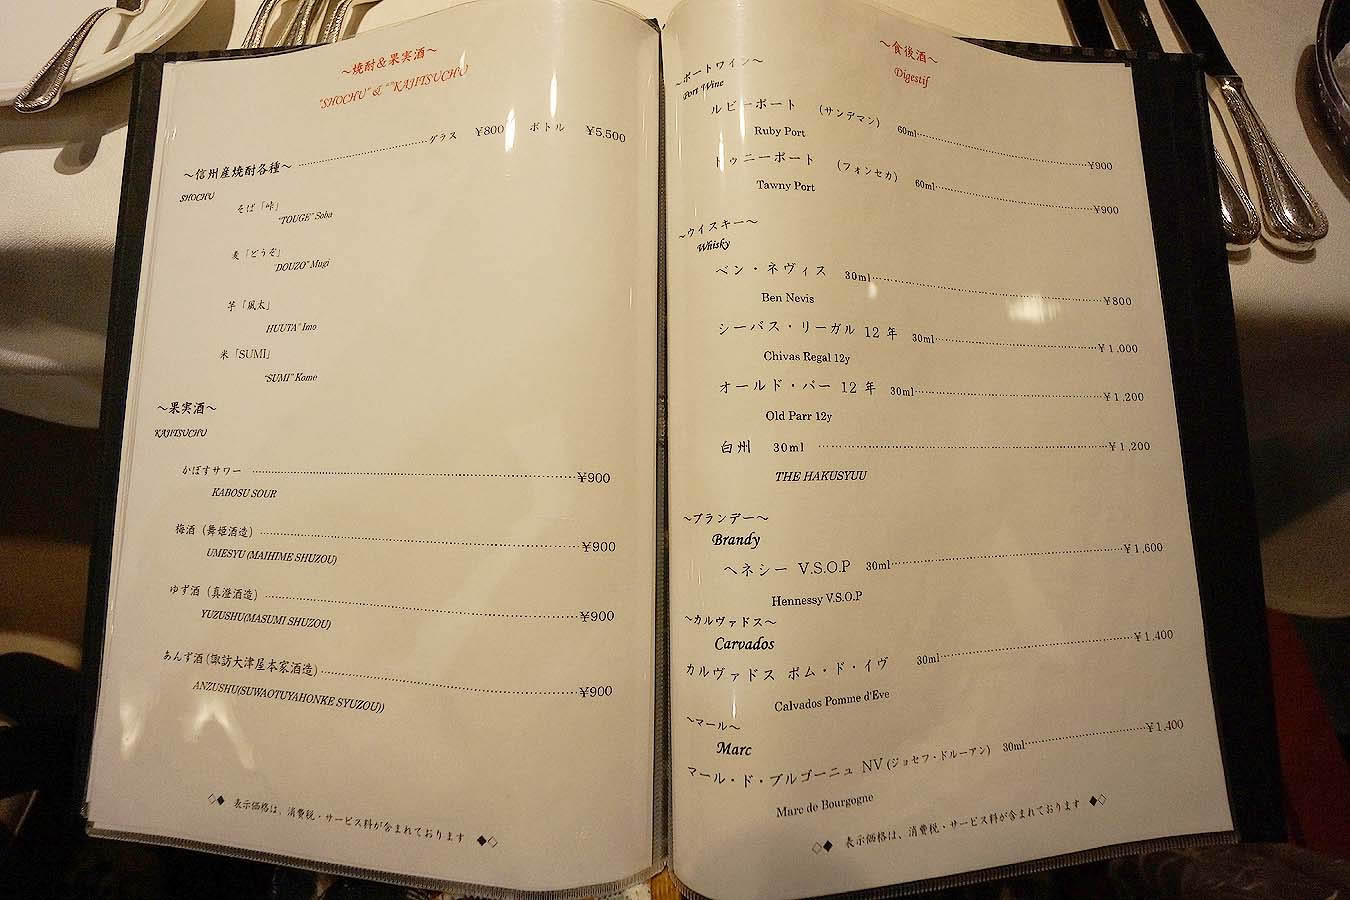 ～焼酎&果実酒～
"SHOCHU" & "KAJITSUCHU
グラス ¥800 ボトル ¥5,500
～信州産焼酎各種～
SHOCHU
そば「峠」
"TOUGE" Soba
麦「どうぞ」
"DOUZO" Mugi
芋「風太」
HUUTA" Imo
米「SUMI」
"SUMI" Kome
～果実酒～
KAJITSUCHU
かぼすサワー ¥900
KABOSU SOUR
梅酒（舞姫酒造） ¥900
UMESYU (MAIHIME SHUZOU)
ゆず酒（真澄酒造） ¥900
YUZUSHU(MASUMI SHUZOU)
あんず酒(諏訪大津屋本家酒造) ¥900
ANZUSHU(SUWAOTUYAHONKE SYUZOU))
◇◆ 表示価格は、消費税・サービス料が含まれております ◆◇
～食後酒～
Digestif
～ポートワイン～
Port Wine
ルビーポート （サンデマン） 60ml ¥900
Ruby Port
トゥニーポート （フォンセカ） 60ml ¥900
Tawny Port
～ウイスキー～
Whisky
ベン・ネヴィス 30ml ¥800
Ben Nevis
シーバス・リーガル 12 年 30ml ¥1,000
Chivas Regal 12y
オールド・パー 12 年 30ml ¥1,200
Old Parr 12y
白州 30ml ¥1,200
THE HAKUSYUU
～ブランデー～
Brandy
ヘネシー V.S.O.P 30ml ¥1,600
Hennessy V.S.O.P
～カルヴァドス～
Carvados
カルヴァドス ポム・ド・イヴ 30ml ¥1,400
Calvados Pomme d'Eve
～マール～
Marc
マール・ド・ブルゴーニュ NV (ジョセフ・ドルーアン) 30ml ¥1,400
Marc de Bourgogne
◇◆ 表示価格は、消費税・サービス料が含まれております ◆◇